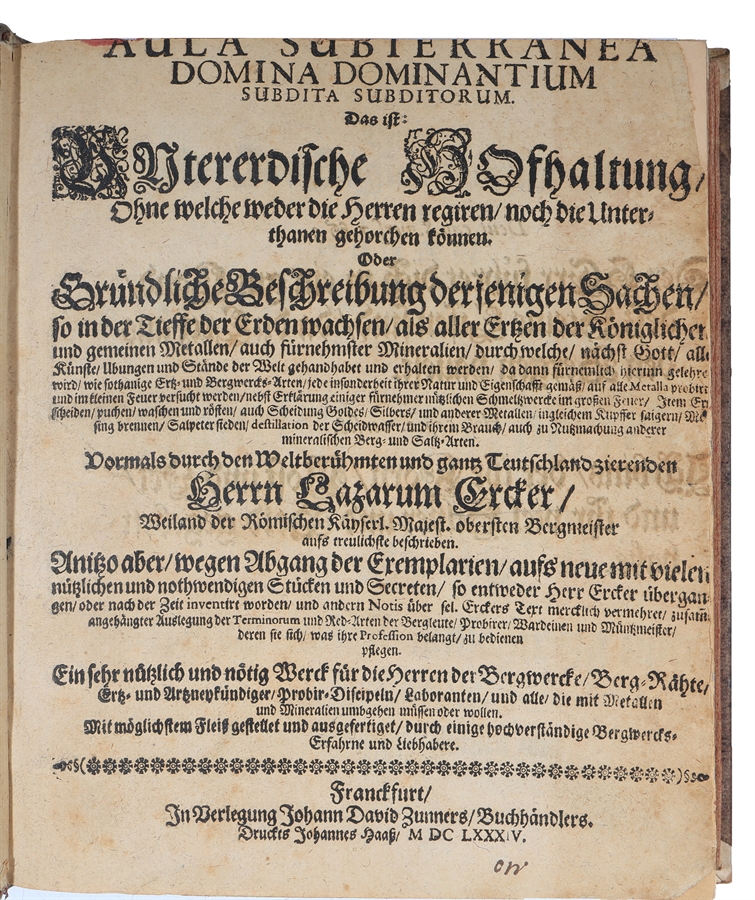 AULA SUBTERRANEA
DOMINA DOMINANTIUM
SUBDITA SUBDITORUM.
Das ist:
UNtererdische HOfhaltung/
Ohne welche weder die Herren regiren/ noch die Unter-
thanen gehorchen können.
Oder
Gründliche Beschreibung derjenigen Sachen/
so in der Tieffe der Erden wachsen/ als aller Ertzen der Königlichen
und gemeinen Metallen/ auch fürnehmster Mineralien/ durch welche/ nächst Gott/ alle
Künste/ Ubungen und Stände der Welt gehandhabet und erhalten werden/ da dann fürnemlich hierinn gelehret
wird/ wie sothanige Ertz- und Bergwercks-Arten/ jede insonderheit ihrer Natur und Eigenschafft gemäß/ auf alle Metalla probirt
und im kleinen Feuer versucht werden/ nebst Erklärung einiger fürnehmer nützlichen Schmeltzwercke im großen Feuer/ Item Ertz
scheiden/ puchen/ waschen und rösten/ auch Scheidung Goldes/ Silbers/ und anderer Metallen/ ingleichem Kupffer saigern/ Mes
sing brennen/ Salpeter sieden/ destillation der Scheidwasser/ und ihrem Brauch/ auch zu Nutzmachung anderer
mineralischen Berg- und Saltz-Arten.
Vormals durch den Weltberühmten und gantz Teutschland zierenden
Herrn Lazarum Ercker/
Weiland der Römischen Käyserl. Majest. obersten Bergmeister
aufs treulichste beschrieben.
Anitzo aber/ wegen Abgang der Exemplarien/ aufs neue mit vielen
nützlichen und nothwendigen Stücken und Secreten/ so entweder Herr Ercker übergan
gen/ oder nach der Zeit inventirt worden/ und andern Notis über sel. Erckers Text mercklich vermehret/ zusamt
angehängter Auslegung der Terminorum und Red-Arten der Bergleute/ Probirer/ Wardeinen und Müntzmeister/
deren sie sich/ was ihre Profession belangt/ zu bedienen
pflegen.
Ein sehr nützlich und nötig Werck für die Herren der Bergwercke/ Berg-Rähte/
Ertz- und Artzneykündiger/ Probir-Discipeln/ Laboranten/ und alle/ die mit Metallen
und Mineralien umbgehen müssen oder wollen.
Mit möglichstem Fleiß gestellet und ausgefertiget/ durch einige hochverständige Bergwercks-
Erfahrne und Liebhabere.
Franckfurt/
In Verlegung Johann David Zunners/ Buchhändlers.
Druckts Johannes Haaß/ M DC LXXXIV.